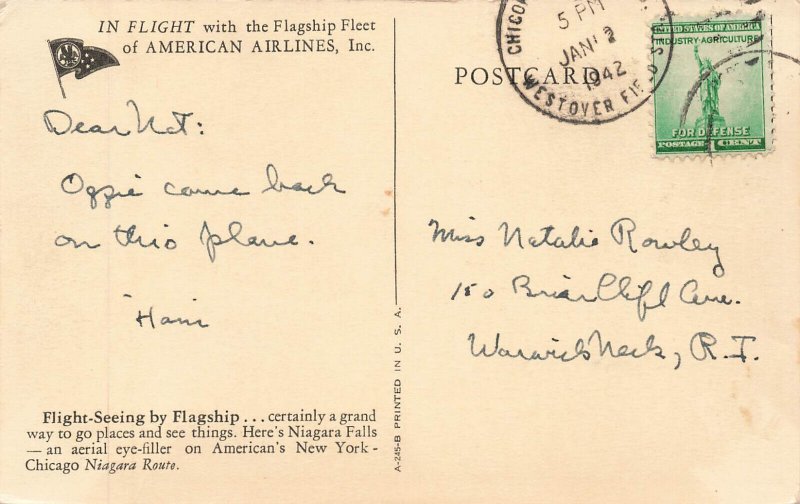 IN FLIGHT with the Flagship Fleet
of AMERICAN AIRLINES, Inc.
Dear Nat:
Oggie came back
on this plane.
Ham
Flight-Seeing by Flagship . . . certainly a grand
way to go places and see things. Here's Niagara Falls
— an aerial eye-filler on American's New York -
Chicago Niagara Route.
A-245-B PRINTED IN U. S. A.
POSTCARD
CHICO
5 PM
JAN 2
1942
WESTOVER FIELD
UNITED STATES OF AMERICA
INDUSTRY-AGRICULTURE
FOR DEFENSE
POSTAGE 1 CENT
Miss Natalie Rowley
150 Briar Cliff Ave.
Warwick Neck, R.I.